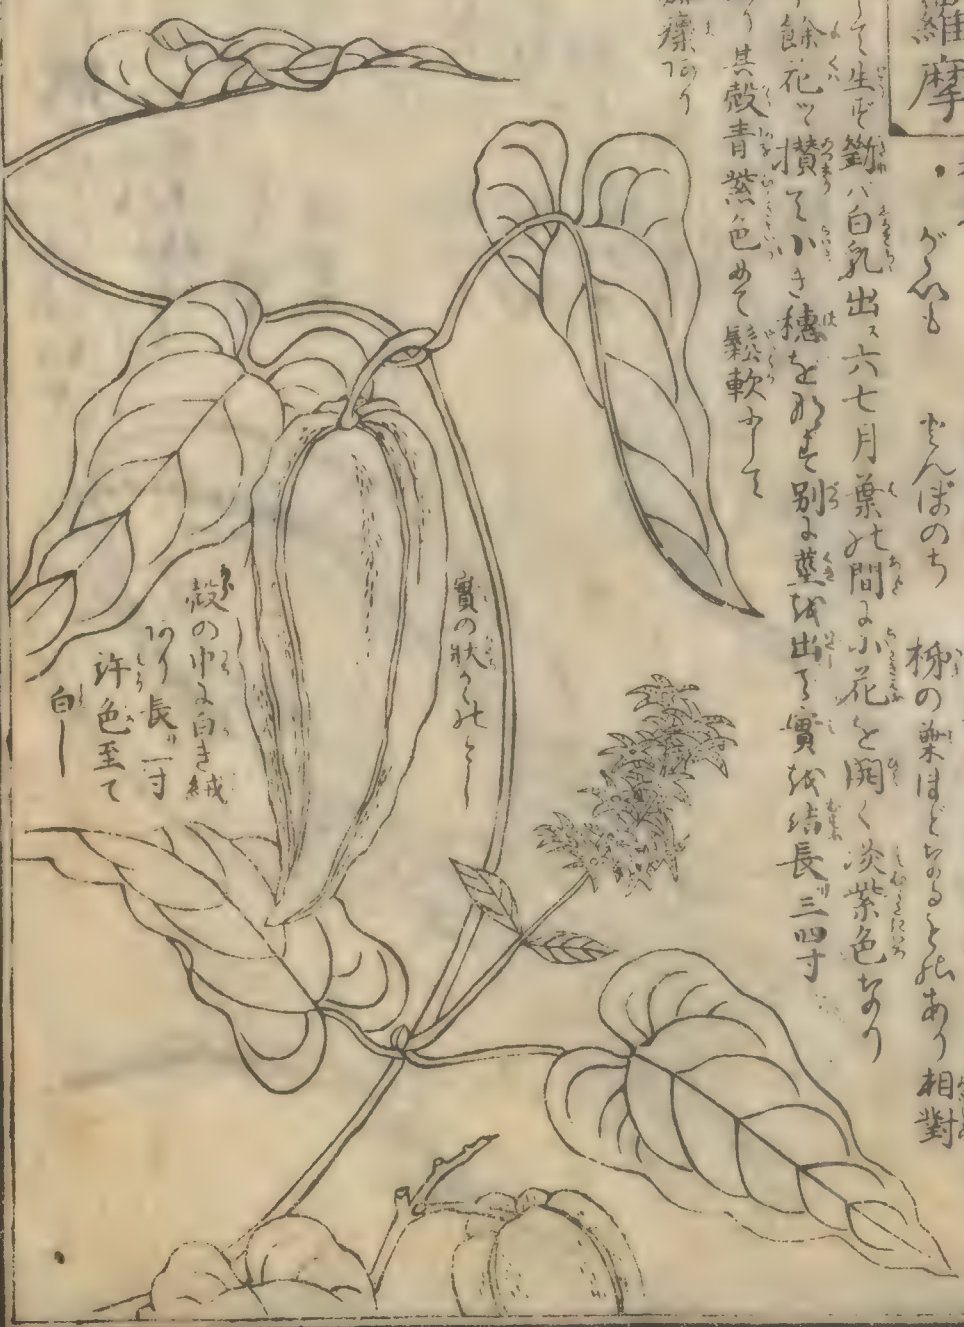 蘿摩
がゝいも　とんぼのち　柹の葉ほどなるものあり相對
して生ず斷バ白乳出ス六七月葉の間に小花を開く淡紫色なり
餘花ツ攅て小き穗を形す別に莖を出し實を結長サ三四寸
り其殼青紫色めて鬆軟にして
癢あり
實の狀かくのごとし
殼の巾に白き絨
あり長サ一寸
許色至て
白し